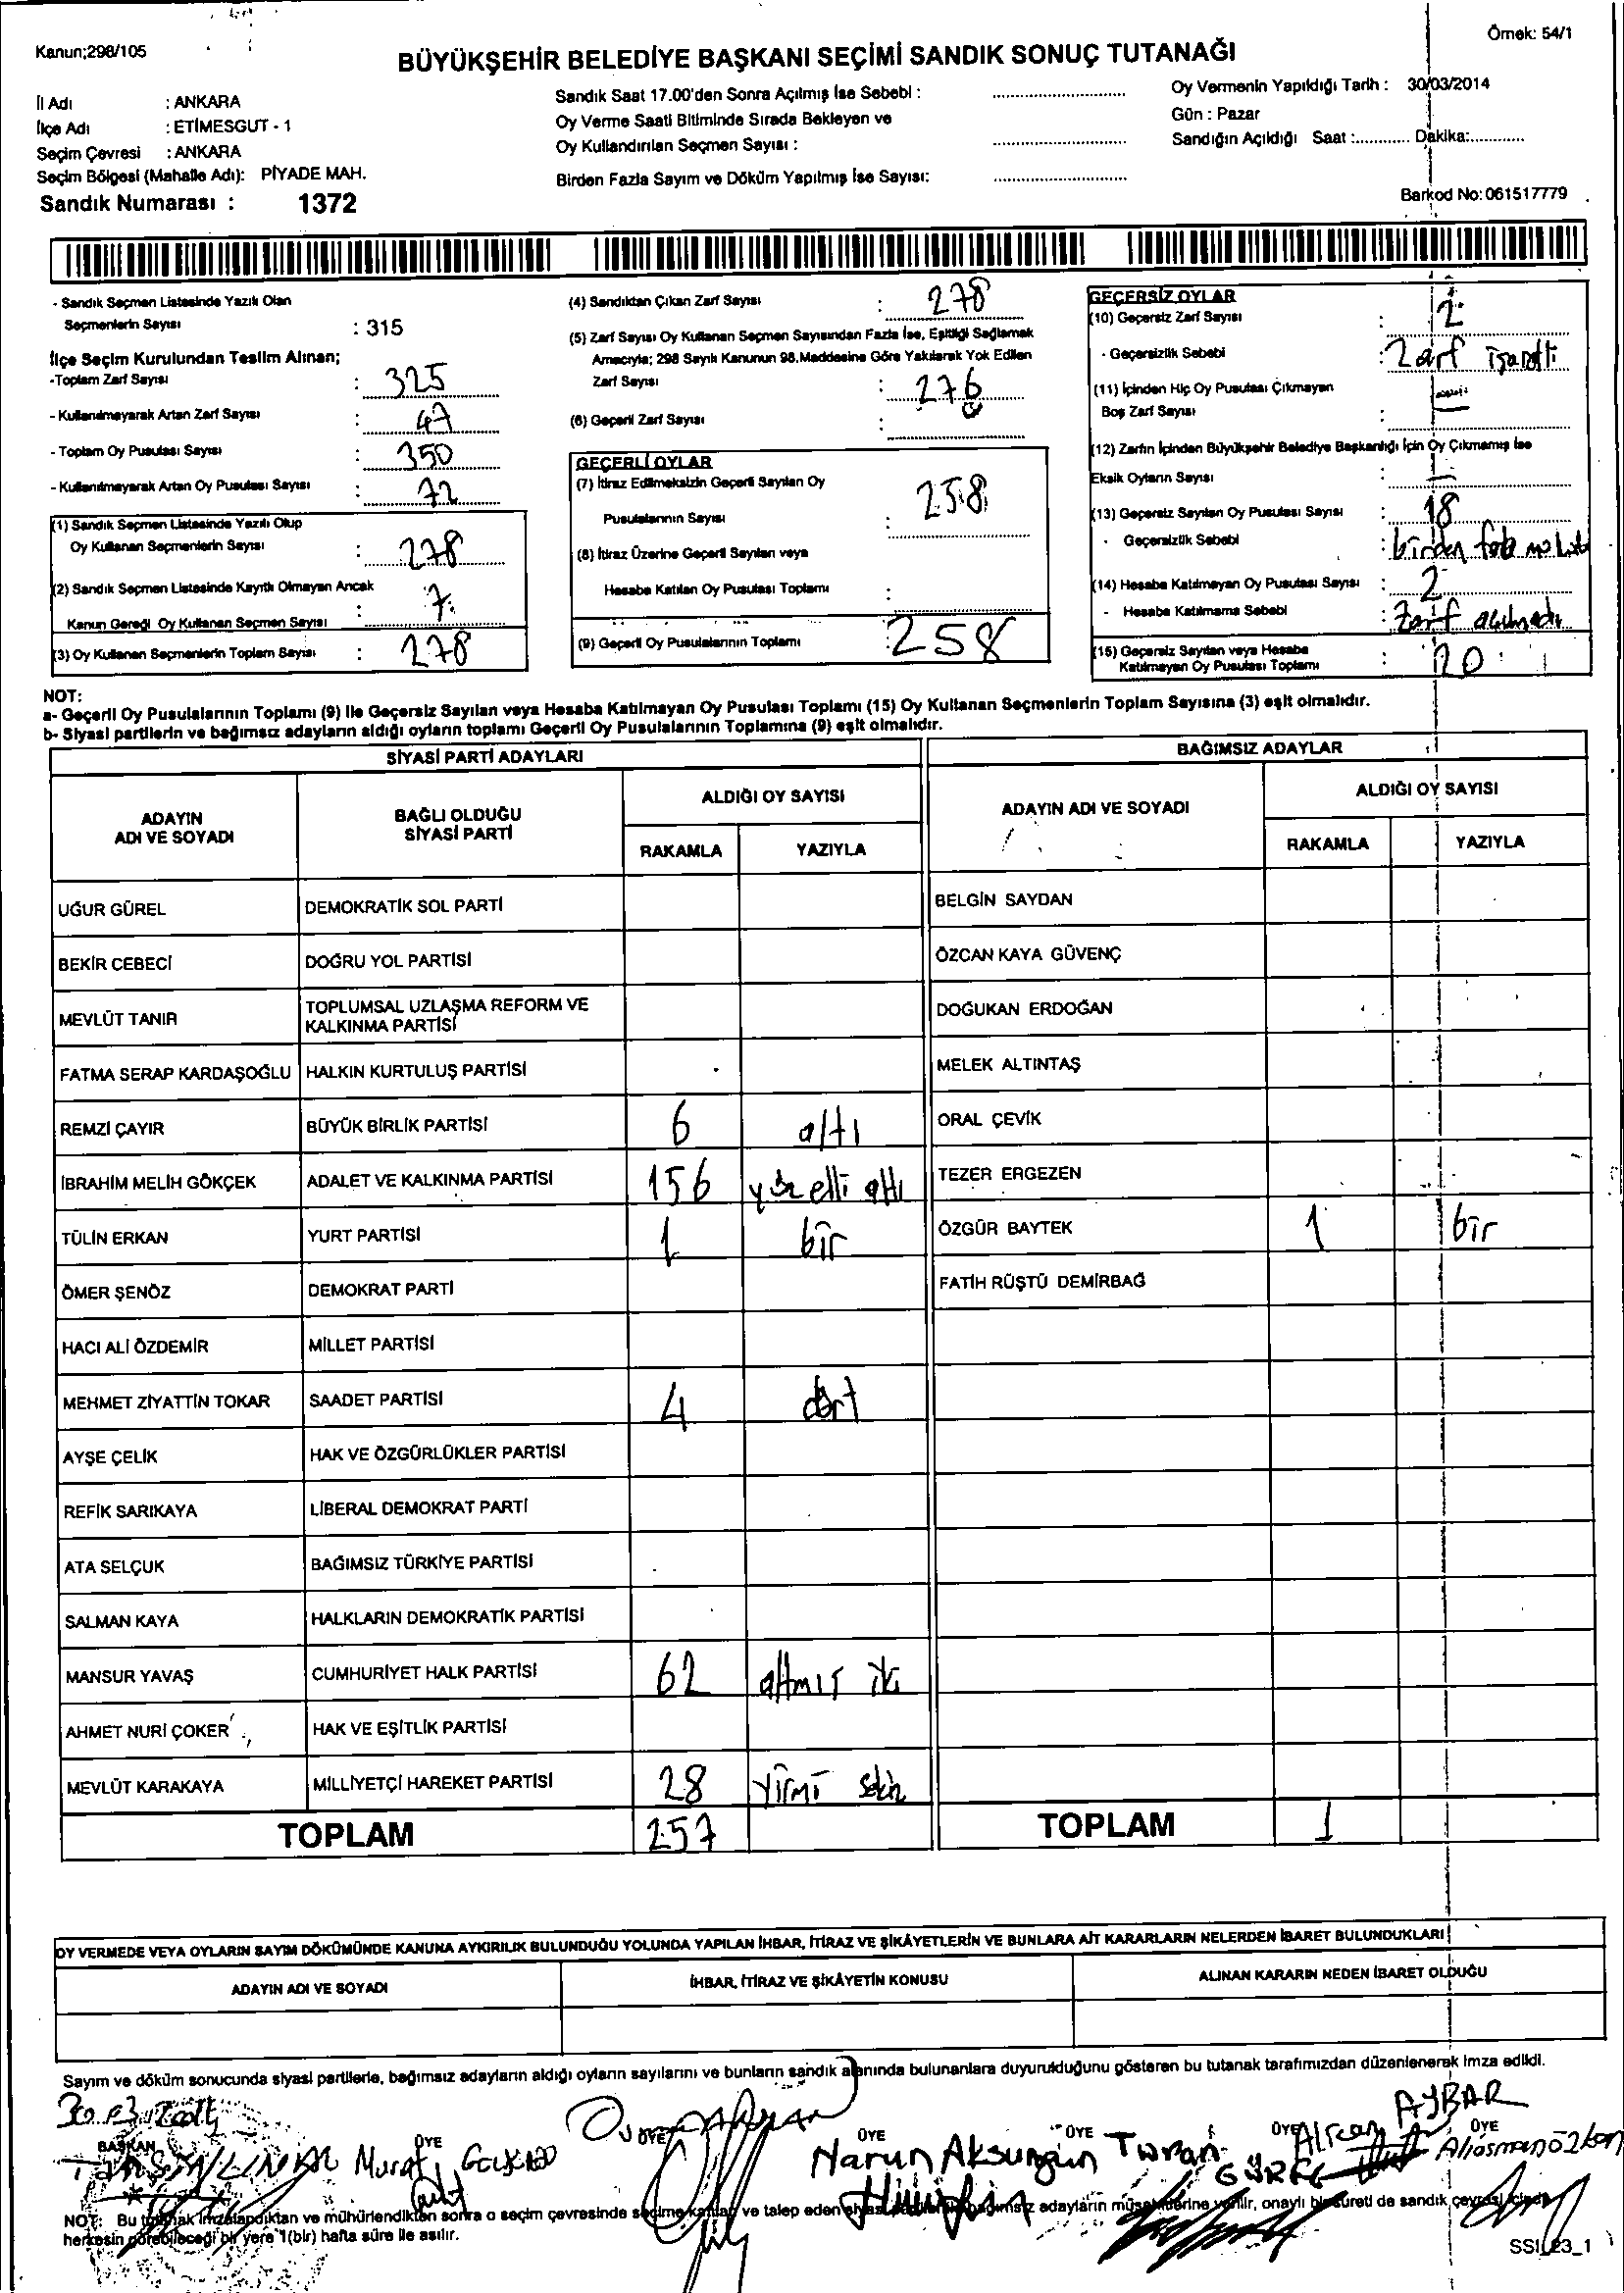 Kanun;298/105
Örnek: 54/1
BÜYÜKŞEHİR BELEDİYE BAŞKANI SEÇİMİ SANDIK SONUÇ TUTANAĞI
İl Adı : ANKARA
İlçe Adı : ETİMESGUT - 1
Seçim Çevresi : ANKARA
Seçim Bölgesi (Mahalle Adı): PİYADE MAH.
Sandık Numarası : 1372
Sandık Saat 17.00'den Sonra Açılmış İse Sebebi :
Oy Verme Saati Bitiminde Sırada Bekleyen ve
Oy Kullandırılan Seçmen Sayısı :
Birden Fazla Sayım ve Döküm Yapılmış İse Sayısı:
Oy Vermenin Yapıldığı Tarih : 30/03/2014
Gün : Pazar
Sandığın Açıldığı Saat :............ Dakika:............
Barkod No: 061517779
- Sandık Seçmen Listesinde Yazılı Olan
Seçmenlerin Sayısı : 315
İlçe Seçim Kurulundan Teslim Alınan;
-Toplam Zarf Sayısı : 325
- Kullanılmayarak Artan Zarf Sayısı : 47
- Toplam Oy Pusulası Sayısı : 350
- Kullanılmayarak Artan Oy Pusulası Sayısı : 72
(1) Sandık Seçmen Listesinde Yazılı Olup
Oy Kullanan Seçmenlerin Sayısı : 278
(2) Sandık Seçmen Listesinde Kayıtlı Olmayan Ancak
Kanun Gereği Oy Kullanan Seçmen Sayısı : 7.
(3) Oy Kullanan Seçmenlerin Toplam Sayısı : 278
(4) Sandıktan Çıkan Zarf Sayısı : 278
(5) Zarf Sayısı Oy Kullanan Seçmen Sayısından Fazla İse, Eşitliği Sağlamak
Amacıyla; 298 Sayılı Kanunun 98.Maddesine Göre Yakılarak Yok Edilen
Zarf Sayısı : 276
(6) Geçerli Zarf Sayısı :
GEÇERLİ OYLAR
(7) İtiraz Edilmeksizin Geçerli Sayılan Oy
Pusulalarının Sayısı : 258
(8) İtiraz Üzerine Geçerli Sayılan veya
Hesaba Katılan Oy Pusulası Toplamı :
(9) Geçerli Oy Pusulalarının Toplamı : 258
GEÇERSİZ OYLAR
(10) Geçersiz Zarf Sayısı : 2
- Geçersizlik Sebebi : Zarf işaretli
(11) İçinden Hiç Oy Pusulası Çıkmayan
Boş Zarf Sayısı : —
(12) Zarfın İçinden Büyükşehir Belediye Başkanlığı İçin Oy Çıkmamış İse
Eksik Oyların Sayısı : —
(13) Geçersiz Sayılan Oy Pusulası Sayısı : 18
- Geçersizlik Sebebi : birden
(14) Hesaba Katılmayan Oy Pusulası Sayısı : 2
- Hesaba Katılmama Sebebi : Zarf açılmadı
(15) Geçersiz Sayılan veya Hesaba
Katılmayan Oy Pusulası Toplamı : 20
NOT:
a- Geçerli Oy Pusulalarının Toplamı (9) ile Geçersiz Sayılan veya Hesaba Katılmayan Oy Pusulası Toplamı (15) Oy Kullanan Seçmenlerin Toplam Sayısına (3) eşit olmalıdır.
b- Siyasi partilerin ve bağımsız adayların aldığı oyların toplamı Geçerli Oy Pusulalarının Toplamına (9) eşit olmalıdır.
SİYASİ PARTİ ADAYLARI
BAĞIMSIZ ADAYLAR
ADAYIN ADI VE SOYADI
BAĞLI OLDUĞU SİYASİ PARTİ
ALDIĞI OY SAYISI
RAKAMLA YAZIYLA
ADAYIN ADI VE SOYADI
ALDIĞI OY SAYISI
RAKAMLA YAZIYLA
UĞUR GÜREL DEMOKRATİK SOL PARTİ BELGİN SAYDAN
BEKİR CEBECİ DOĞRU YOL PARTİSİ ÖZCAN KAYA GÜVENÇ
MEVLÜT TANIR TOPLUMSAL UZLAŞMA REFORM VE KALKINMA PARTİSİ DOĞUKAN ERDOĞAN
FATMA SERAP KARDAŞOĞLU HALKIN KURTULUŞ PARTİSİ MELEK ALTINTAŞ
REMZİ ÇAYIR BÜYÜK BİRLİK PARTİSİ 6 altı ORAL ÇEVİK
İBRAHİM MELİH GÖKÇEK ADALET VE KALKINMA PARTİSİ 156 yüz elli altı TEZER ERGEZEN
TÜLİN ERKAN YURT PARTİSİ 1 bir ÖZGÜR BAYTEK 1 bir
ÖMER ŞENÖZ DEMOKRAT PARTİ FATİH RÜŞTÜ DEMİRBAĞ
HACI ALİ ÖZDEMİR MİLLET PARTİSİ
MEHMET ZİYATTİN TOKAR SAADET PARTİSİ 4 dört
AYŞE ÇELİK HAK VE ÖZGÜRLÜKLER PARTİSİ
REFİK SARIKAYA LİBERAL DEMOKRAT PARTİ
ATA SELÇUK BAĞIMSIZ TÜRKİYE PARTİSİ
SALMAN KAYA HALKLARIN DEMOKRATİK PARTİSİ
MANSUR YAVAŞ CUMHURİYET HALK PARTİSİ 62 altmış iki
AHMET NURİ ÇOKER HAK VE EŞİTLİK PARTİSİ
MEVLÜT KARAKAYA MİLLİYETÇİ HAREKET PARTİSİ 28 yirmi sekiz
TOPLAM 257 TOPLAM 1
OY VERMEDE VEYA OYLARIN SAYIM DÖKÜMÜNDE KANUNA AYKIRILIK BULUNDUĞU YOLUNDA YAPILAN İHBAR, İTİRAZ VE ŞİKÂYETLERİN VE BUNLARA AİT KARARLARIN NELERDEN İBARET BULUNDUKLARI
ADAYIN ADI VE SOYADI İHBAR, İTİRAZ VE ŞİKÂYETİN KONUSU ALINAN KARARIN NEDEN İBARET OLDUĞU
Sayım ve döküm sonucunda siyasi partilerle, bağımsız adayların aldığı oyların sayılarını ve bunların sandık alanında bulunanlara duyurulduğunu gösteren bu tutanak tarafımızdan düzenlenerek imza edildi.
BAŞKAN ÜYE ÜYE ÜYE ÜYE ÜYE ÜYE
Murat
Harun Aksungun
Turan GÜREL
Alican AYBAR
Aliosman Özkan
NOT: Bu tutanak imzalandıktan ve mühürlendikten sonra o seçim çevresinde seçime katılan ve talep eden siyasi adayların müşahitlerine verilir, onaylı bir sureti de sandık çevresi içinde
herkesin görebileceği bir yere 1(bir) hafta süre ile asılır.
SSI_23_1